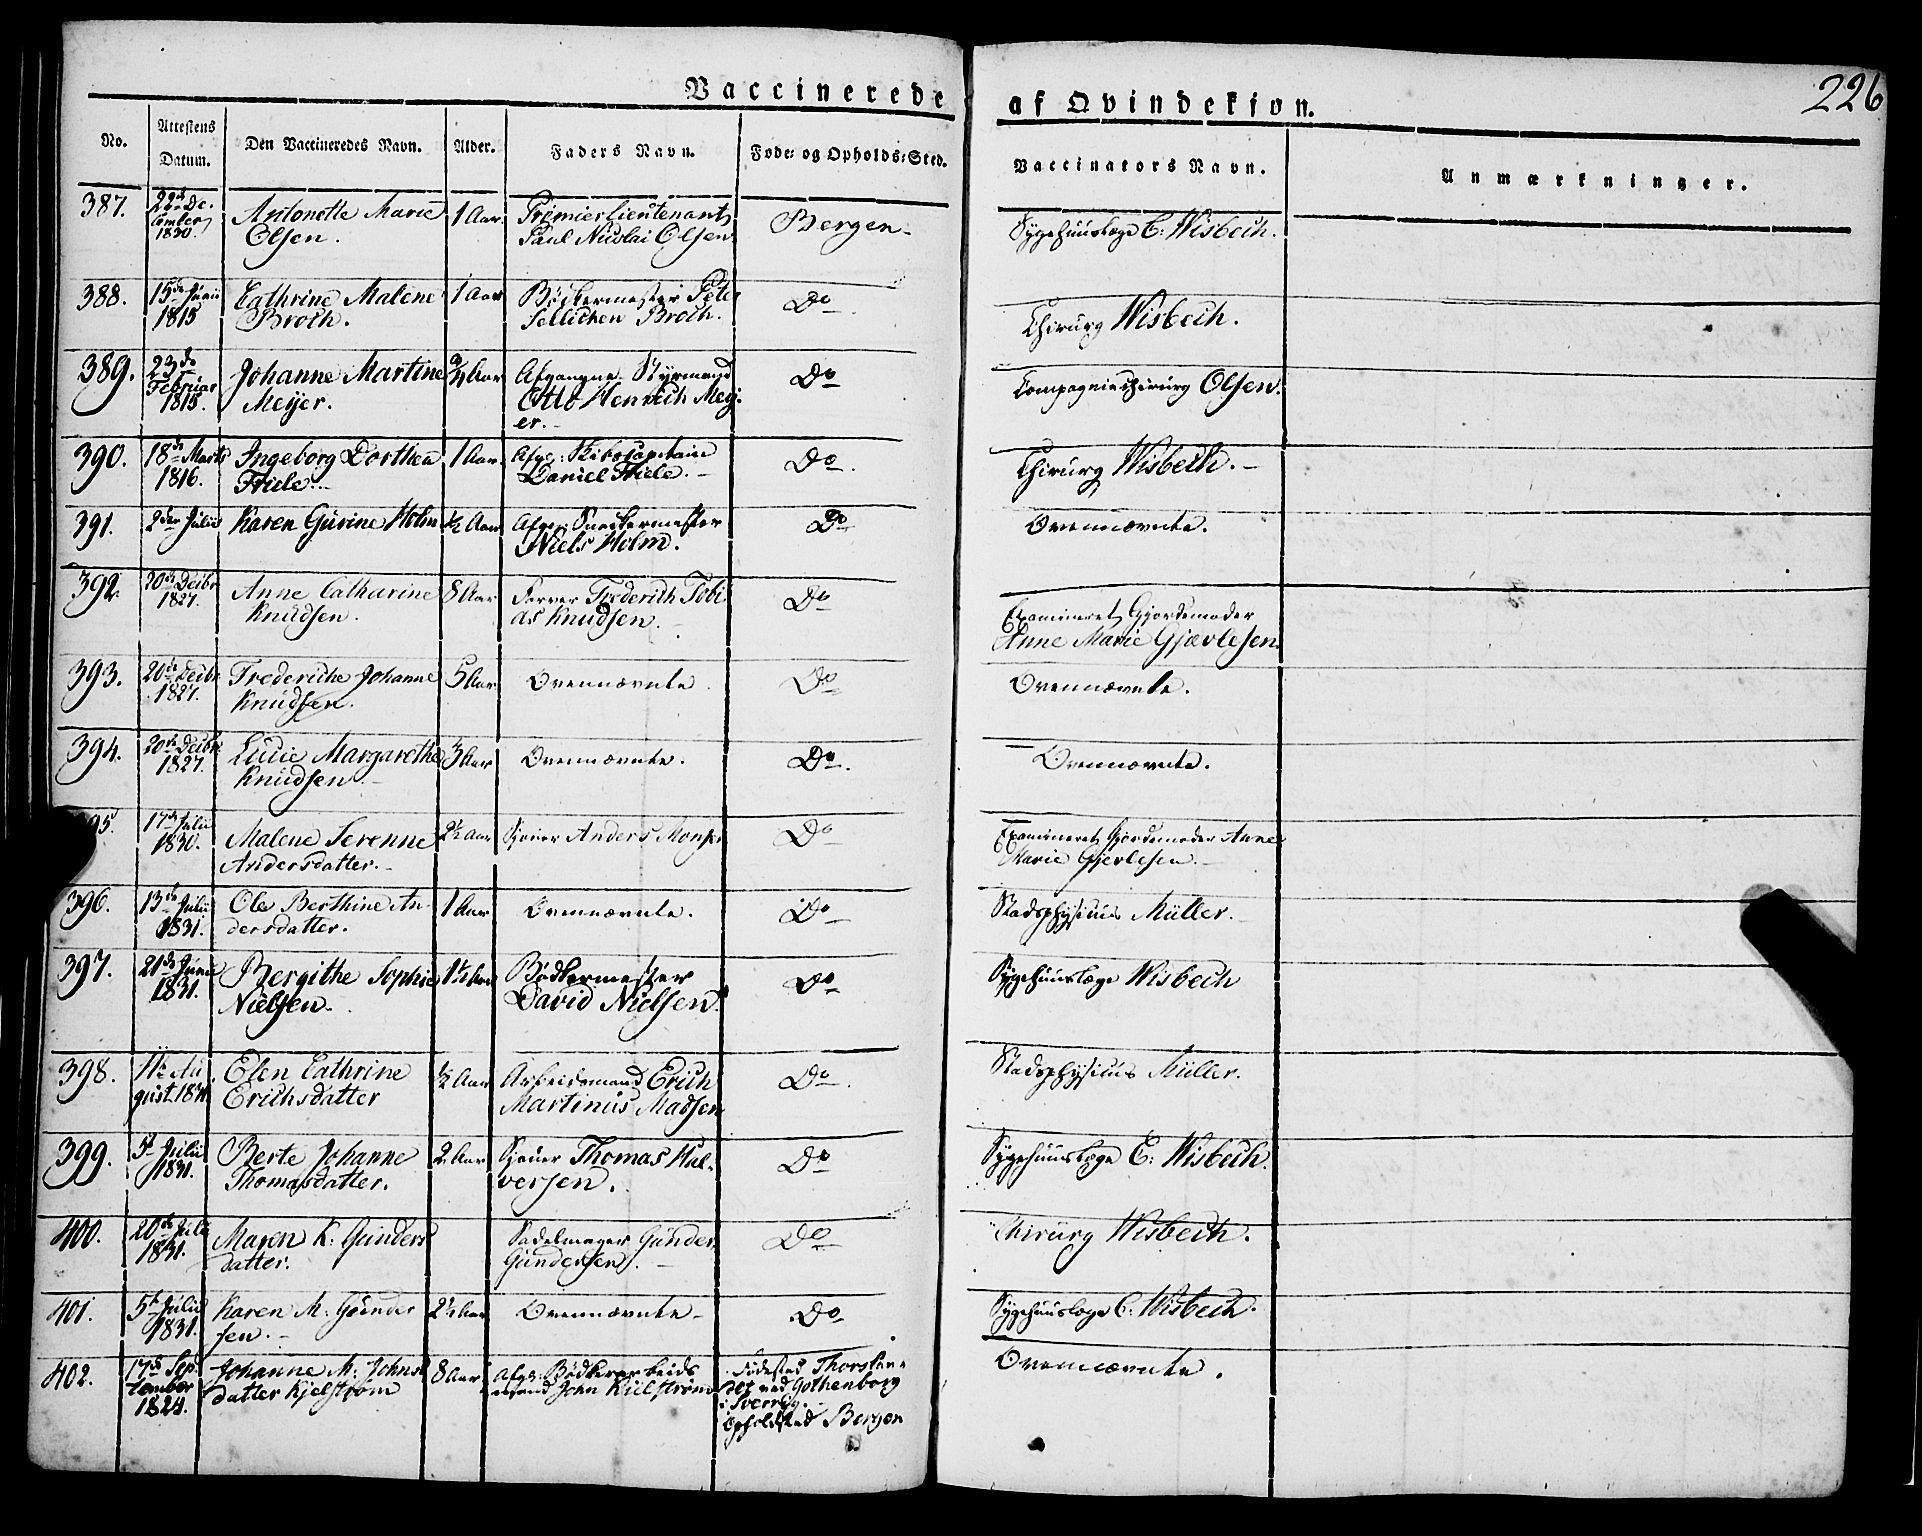 Vaccinerede af Qvindekjøn.
226
No. Attestens Datum. Den Vaccineredes Navn. Alder. Faders Navn. Føde- og Opholds-Sted. Vaccinators Navn. Anmærkninger.
387. 22de De- Antonette Marie 1 Aar Premierlieutenant Bergen Sygehuuslæge C: Wisbech.
cember 1830. Olsen. Paul Nicolai Olsen
388. 15de Junii Cathrine Malene 1 Aar Bødkermester Peter Do Chirurg Wisbech.
1815 Broch. Sellichen Broch.
389. 23de Johanne Martine 3/4 Aar Afgangne Styrmand Do Compagniechirurg Olsen.
Februar 1815. Meyer. Otto Henrich Mey-
er.
390. 18de Marts Ingeborg Dorthea 1 Aar Afg: Skibscapitain Do. Chirurg Wisbech.
1816. Friele. Daniel Friele.
391. 2den Julii Karen Gurine Holm 1/2 Aar Afg: Snedkermester Do Ovennævnte.
Niels Holm.
392. 20de Decbr Anne Catharine 8 Aar Farver Frederich Tobi- Do Examineret Gjordemoder
1827. Knudsen. as Knudsen. Anne Marie Gjærlesen
393. 20de Decbr Frederiche Johanne 5 Aar Ovennævnte. Do Ovennævnte.
1827. Knudsen.
394. 20de Decbr Lucie Margarethe Aar Ovennævnte. Do. Ovennævnte.
1827. Knudsen
95. 17de Julii Malene Serenne 2½ Aar Sjouer Anders Monsen Do Examineret Gjordemoder Anne
1830. Andersdatter. Marie Gjerlesen.
396. 13de Julii Ole Berthine An- 1 Aar Ovennævnte. Do Stadsphysicus Müller.
1831. dersdatter.
397. 21de Junii Bergithe Sophie 1½ Aar Bødkermester Do Sygehuuslæge Wisbech
1831. Nielsen. David Nielsen.
398. 11te Au- Elen Cathrine 1/2 Aar Arbeidsmand Erich Do. Stadsphysicus Müller.
gust 1831 Erichsdatter Martinus Madsen
399. 5te Julii Berte Johanne 2 Aar Sjouer Thomas Hal- Do Sygehuuslæge C: Wisbech.
1831. Thomasdatter. versen.
400. 20de Julii Maren K. Gunders Sadelmager Gunder Do Chirurg Wisbech.
1831. datter. Gundersen.
401. 5te Julii Karen M. Gunder 2½ Aar Ovennævnte Do Sygehuuslæge C: Wisbech.
1831. sen.
402. 17de Sep- Johanne M. Johns 8 Aar Afg: Bødkerarbeids Fødested Thorslan- Ovennævnte.
tember datter Kjelstrøm mand John Kielstrøm det ved Gothenborg
1824. i Sverrig.
Opholdsted Bergen